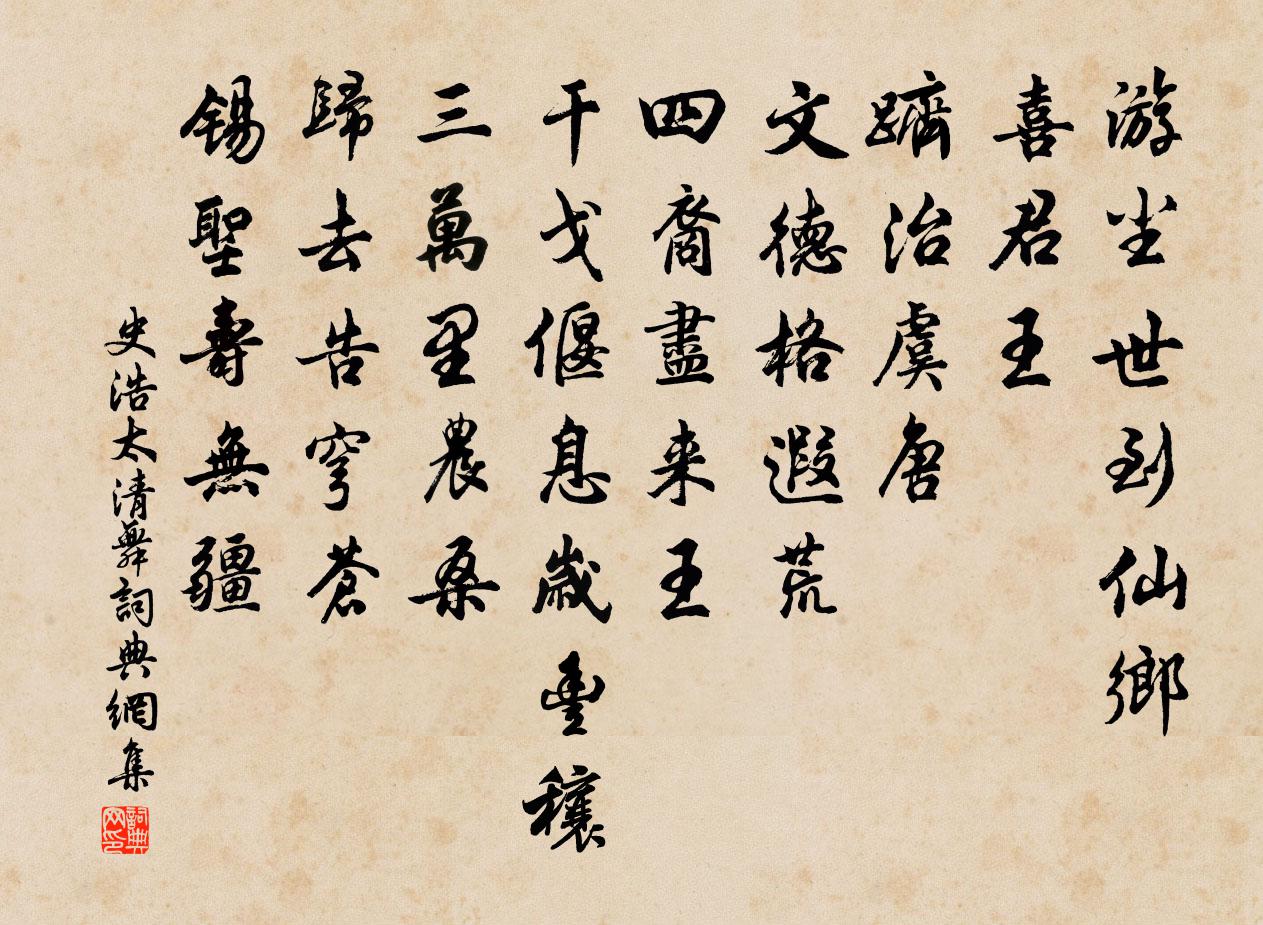 游尘世到仙鄉
喜君王
躋治虞唐
文德格遐荒
四裔盡来王
干戈偃息歲豊穰
三萬里農桑
歸去告穹蒼
錫聖壽無疆
史浩太清舞詞典網集
詞典网印